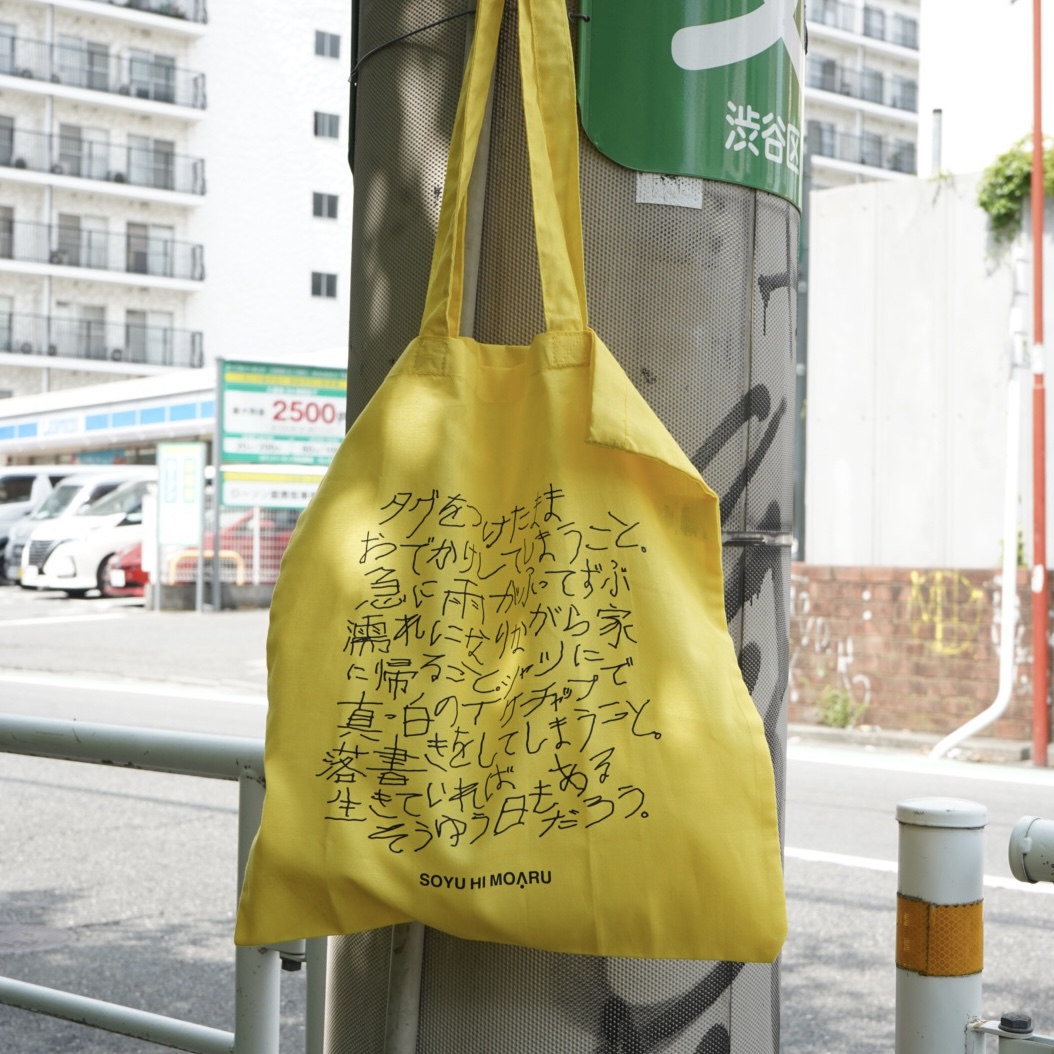 渋谷区
2500
タグをつけたまま
おでかけしてしまうこと。
急に雨がふってずぶ
濡れになりながら家
に帰ること。シャツにで
真っ白のTケチャップで
落書きをしてしまうこと。
生きていればある
そうゆう日もだろう。
SOYU HI MOARU